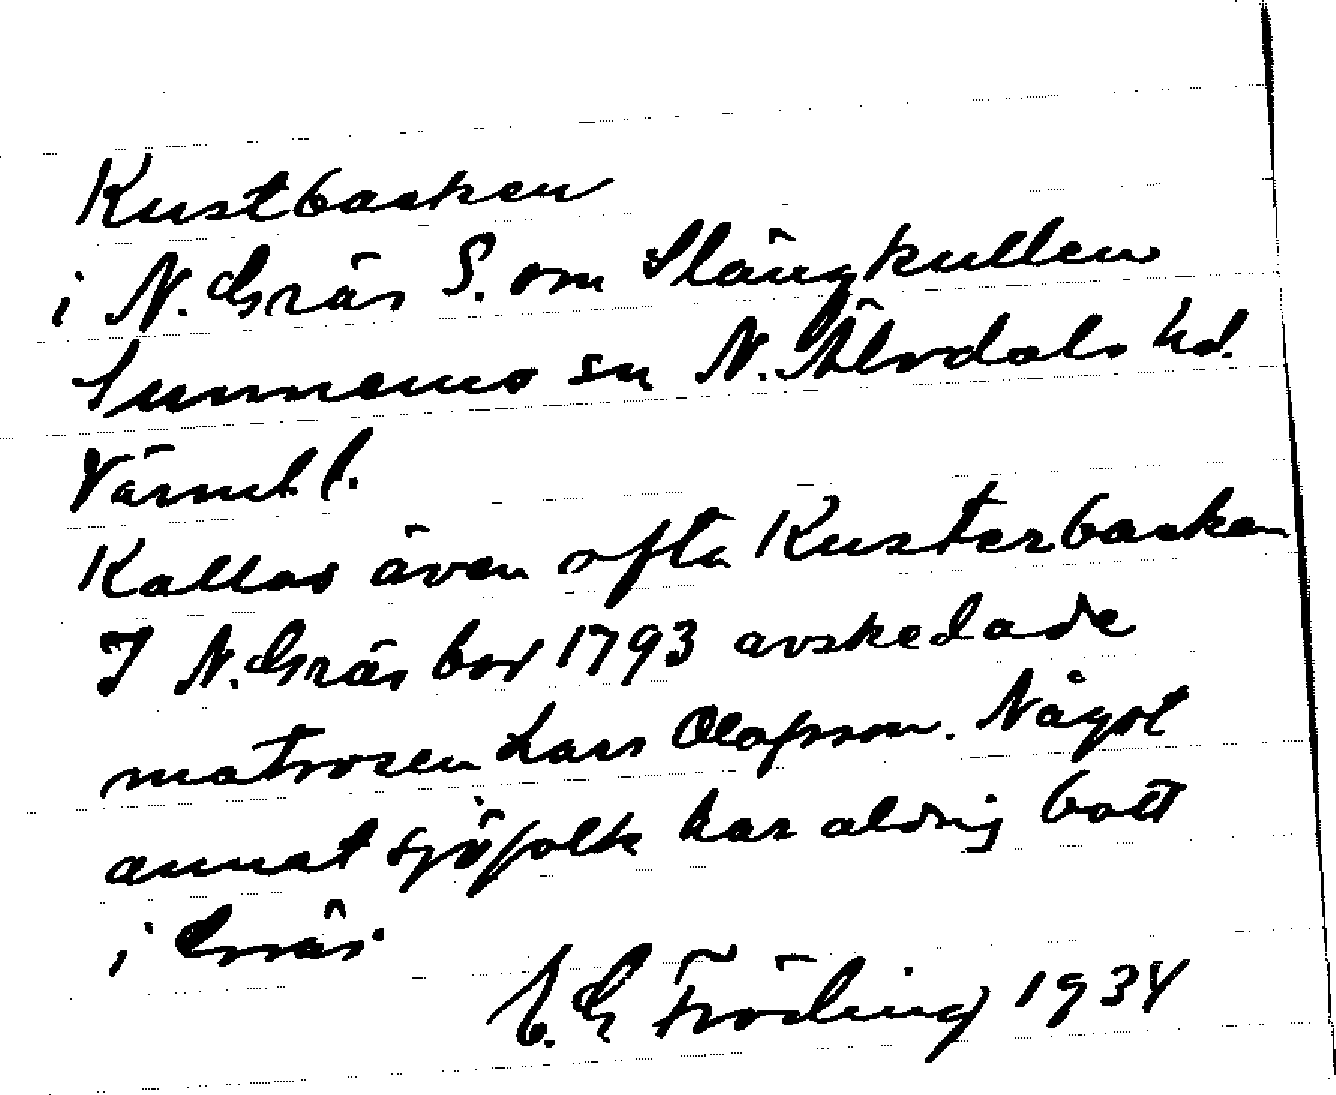 Kustbacken
i N. Gräs S. om Slängkullen
Sunnemo sn N. Älvdals hd.
Värml. l.
Kallas även ofta Kusterbacken
I N. Gräs bor 1793 avskedade
matrosen Lars Olafsson. Något
annat sjöfolk har aldrig bott
i Gräs.
E. G Fröding 1934